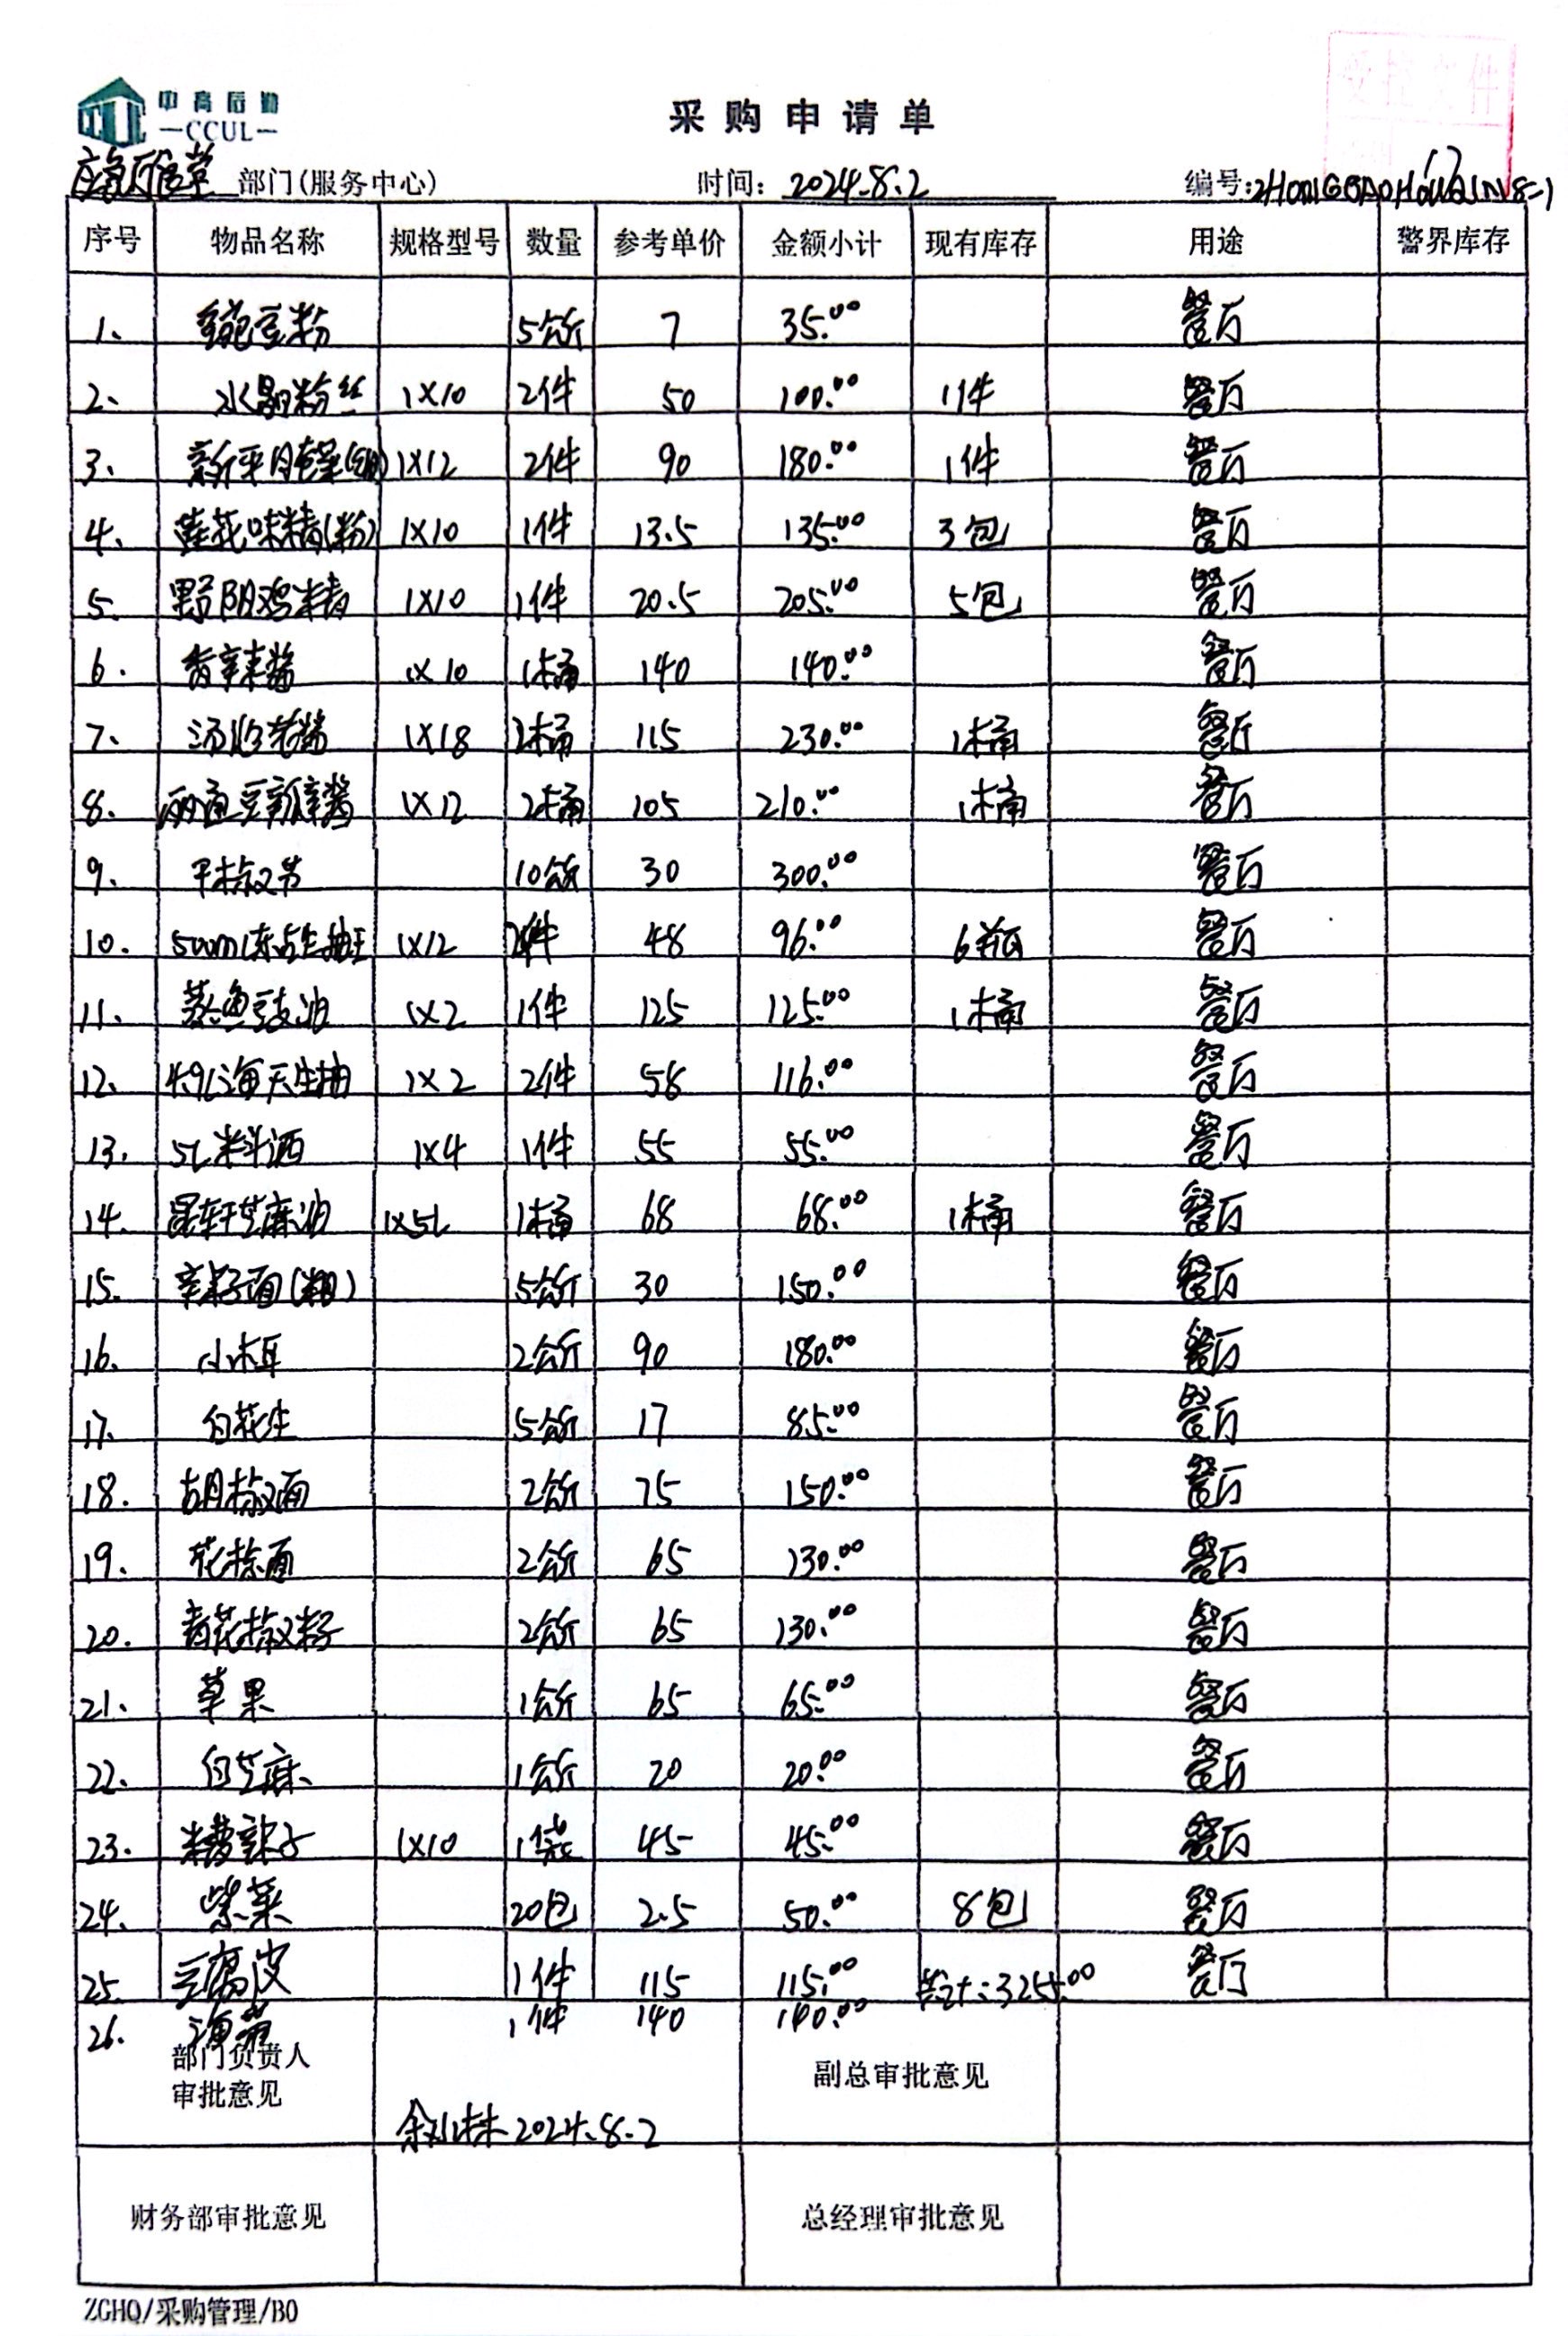 中高后勤
—CCUL—
受控文件
采购申请单
应急厅食堂 部门(服务中心) 时间: 2024.8.2 编号:ZHONGGAOHOUQIN8-1
序号 物品名称 规格型号 数量 参考单价 金额小计 现有库存 用途 警界库存
1、 豌豆粉 5公斤 7 35.00 餐厅
2、 水晶粉丝 1X10 2件 50 100.00 1件 餐厅
3、 1X12 2件 90 180.00 1件 餐厅
4、 莲花味精(粉) 1X10 1件 13.5 135.00 3包 餐厅
5. 野阴鸡精 1X10 1件 20.5 205.00 5包 餐厅
6. 香辣酱 1X10 1桶 140 140.00 餐厅
7、 1X18 2桶 115 230.00 1桶 餐厅
8. 豆瓣酱 1X12 2桶 105 210.00 1桶 餐厅
9、 干椒节 10公斤 30 300.00 餐厅
10. 500ml东古生抽王 1X12 2件 48 96.00 6瓶 餐厅
11. 蒸鱼豉油 1X2 1件 125 125.00 1桶 餐厅
12. 4.9L海天生抽 1X2 2件 58 116.00 餐厅
13. 5L料酒 1X4 1件 55 55.00 餐厅
14. 芝麻油 1X5L 1桶 68 68.00 1桶 餐厅
15. 辣子面(粗) 5公斤 30 150.00 餐厅
16. 小木耳 2公斤 90 180.00 餐厅
17. 白花生 5公斤 17 85.00 餐厅
18. 胡椒面 2公斤 75 150.00 餐厅
19. 花椒面 2公斤 65 130.00 餐厅
20. 青花椒籽 2公斤 65 130.00 餐厅
21. 草果 1公斤 65 65.00 餐厅
22. 白芝麻 1公斤 20 20.00 餐厅
23. 糟辣子 1X10 1袋 45 45.00 餐厅
24. 紫菜 20包 2.5 50.00 8包 餐厅
25. 豆腐皮 1件 115 115.00 共计:3255.00 餐厅
26. 海带 1件 140 140.00
部门负责人
审批意见
副总审批意见
2024.8.2
财务部审批意见 总经理审批意见
ZGHQ/采购管理/B0